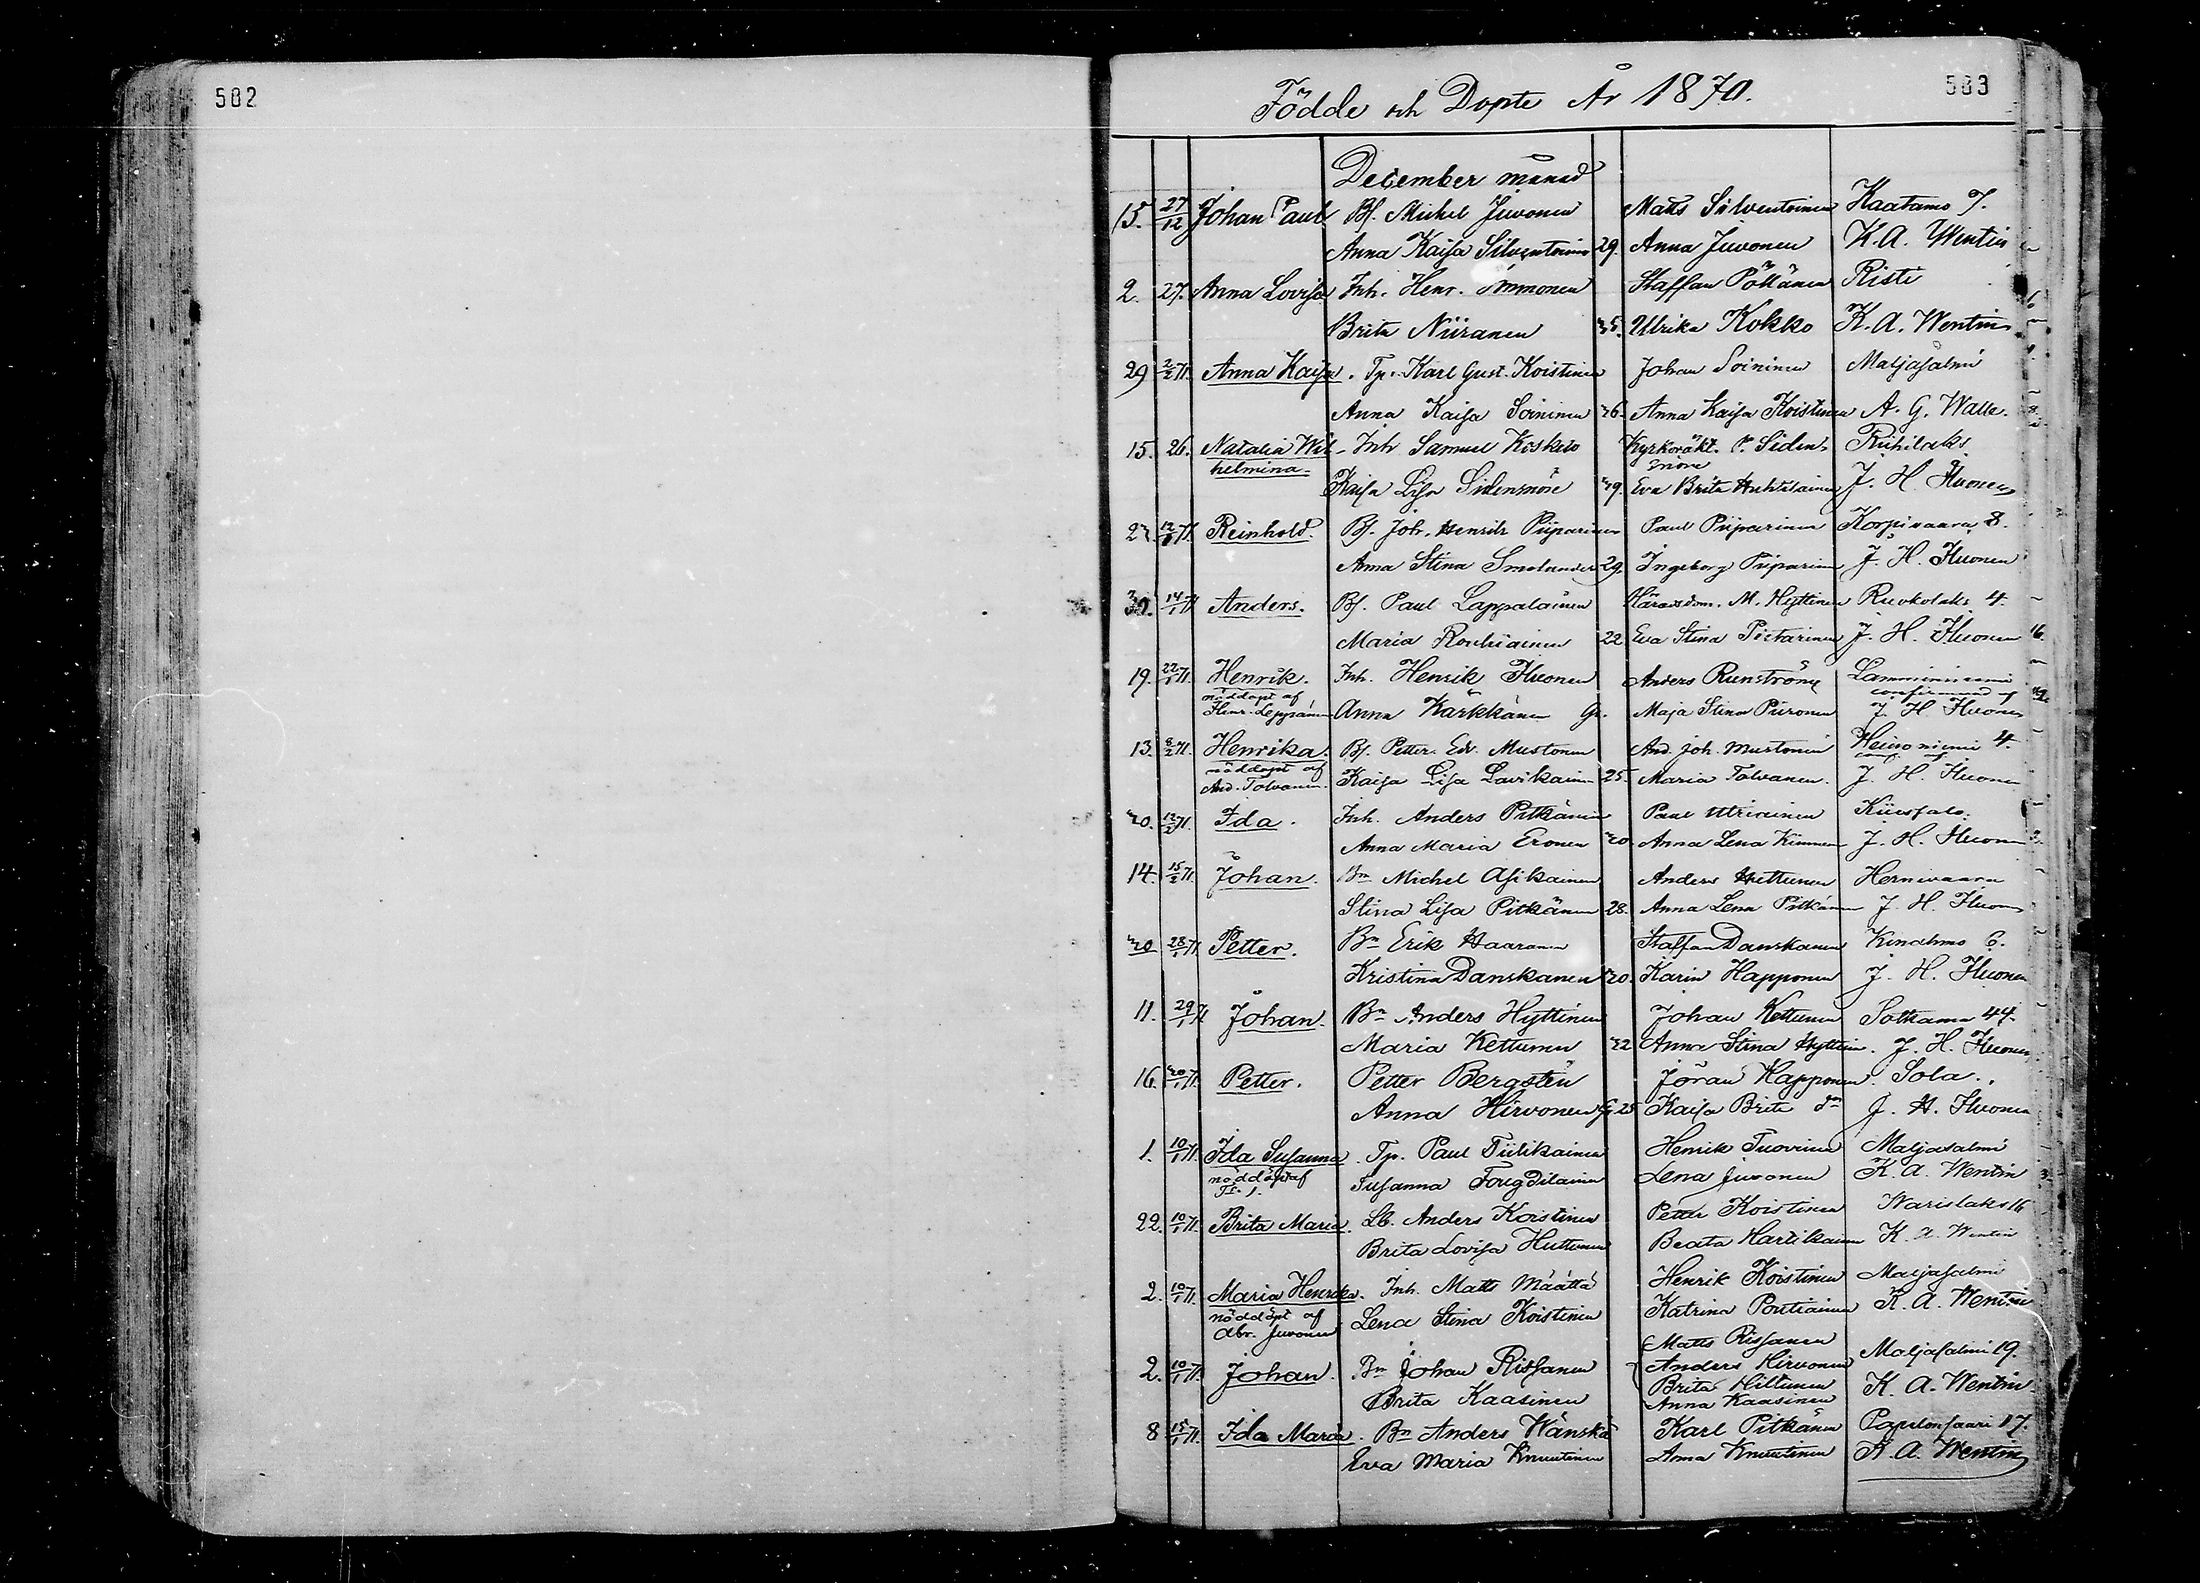 582
583
Födde och Döpte År 1870.
December månad
15. 27/12 Johan Paul Bf. Michel Juvonen Matts Silventoinen Kaatamo 7.
Anna Kaisa Silventoinen 29. Anna Juvonen K. A. Wentin
2. 27. Anna Lovisa Inh. Henr. Immonen Staffan Pöllänen Risti
Brita Niiranen 35. Ulrika Kokko K. A. Wentin
29 2/2 71. Anna Kaisa. Tp. Karl Gust. Koistinen Johan Soininen Maljasalmi
Anna Kaisa Soininen 26. Anna Kaisa Koistinen A. G. Walle.
15. 26. Natalia Wil- Inh Samuel Koskelo Kyrkoväkt. P. Siden- Riihilaks.
helmina. snöre
Kaisa Lisa Sidensnöre 29. Eva Brita Huhtilainen J. H. Ihuonen
27. 71. Reinhold. Bf. Joh. Henrik Piiparinen Paul Piiparinen Korpivaara 8.
Anna Stina Smolander 29. Ingeborg Piiparinen J. H. Ihuonen
30. 14/1 71 Anders. Bf. Paul Lappalainen Häradsdom. M. Hyttinen Ruokolaks 4.
Maria Rouhiainen 22 Eva Stina Pietarinen J. H. Ihuonen 16.
19. 22/1 71. Henrik. Inh. Henrik Ihuonen Anders Runström Lamminniemi
nöddöpt af confirmerad af
Henr. Leppänen Anna Kärkkänen Gr. Maja Stina Piironen J. H. Ihuonen
13. 8/2 71. Henrika. Bf. Petter Edv. Mustonen And. Joh. Mustonen Heinoniemi 4.
nöddöpt af conf. af
And. Tolvanen. Kaisa Lisa Lavikainen 25. Maria Tolvanen. J. H. Ihuonen
20. 12/2 71. Ida. Inh. Anders Pitkänen Paul Utriainen Kiiessalo.
Anna Maria Eronen 20 Anna Lena Kinnunen J. H. Ihuonen
14. 15/2 71. Johan. Bn Michel Asikainen Anders Kettunen Hernevaara
Stina Lisa Pitkänen 28. Anna Lena Pitkänen J. H. Ihuonen
20 28/1 71. Petter. Bn Erik Haaranen Staffan Danskanen Kinahmo 6.
Kristina Danskanen 20. Karin Happonen J. H. Ihuonen
11. 29/1 71 Johan. Bn Anders Hyttinen Johan Kettunen Sotkuma 44.
Maria Kettunen 22 Anna Stina Hyttinen. J. H. Ihuonen
16. 20/1 71. Petter. Petter Bergstén Jöran Happonen Sola.
Anna Hirvonen G. 25 Kaisa Brita dn J. H. Ihuonen
1. 10/1 71. Ida Susanna. Tp. Paul Tiilikainen Henrik Tuovinen Maljasalmi
nöddöpt af Susanna Fougdilainen Lena Juvonen K. A. Wentin
22. 10/1 71. Brita Maria. Lb. Anders Koistinen Petter Koistinen Warislaks 16
Brita Lovisa Huttunen Beata Hartikainen K. A. Wentin
2. 10/1 71. Maria Henrika. Inh. Matts Määttä Henrik Koistinen Maljasalmi
nöddöpt af
Abr. Juvonen Lena Stina Koistinen Katrina Pontiainen K. A. Wentin
Matts Rissanen
2. 10/1 71. Johan. Bn Johan Rissanen Anders Hirvonen Maljasalmi 19.
Brita Hiltunen
Brita Kaasinen Anna Kaasinen K. A. Wentin
8 15/1 71. Ida Maria. Bn Anders Wänskä Karl Pitkänen Papelonsaari 17.
Eva Maria Knuutinen Anna Knuutinen K. A. Wentin